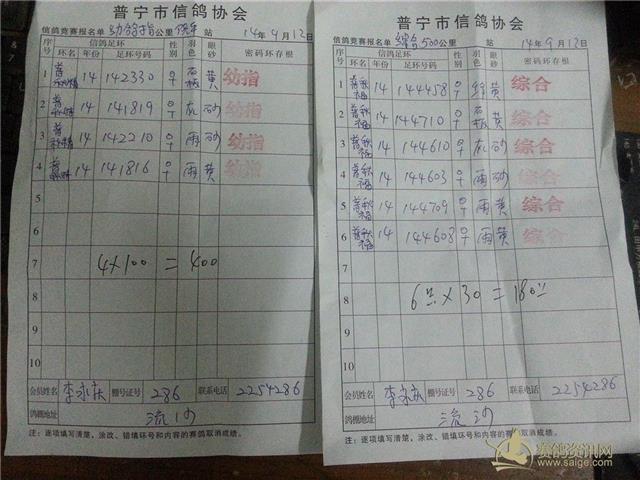 普宁市信鸽协会
信鸽竞赛报名单 幼鸽指 公里 站 14年9月12日
序号 信鸽足环 性别 羽色 眼砂 密码环存根
环名 年份 足环号码
1 普 14 142330 ♀ 石板 黄 幼指
2 普 14 141819 ♀ 灰 砂 幼指
3 普 14 142210 ♀ 雨 砂 幼指
4 普 14 141816 ♀ 雨 黄 幼指
5
6
7 4×100 = 400
8
9
10
会员姓名 李永庆 棚号证号 286 联系电话 2254286
鸽棚地址 流沙
注:逐项填写清楚,涂改、错填环号和内容的赛鸽取消成绩。
普宁市信鸽协会
信鸽竞赛报名单 综合500公里 站 14年9月12日
序号 信鸽足环 性别 羽色 眼砂 密码环存根
环名 年份 足环号码
1 普秋福 14 144458 ♀ 黄 综合
2 普秋福 14 144710 ♀ 石板 黄 综合
3 普秋福 14 144610 ♀ 灰 砂 综合
4 普秋福 14 144603 ♀ 雨 砂 综合
5 普秋福 14 144709 ♀ 雨 黄 综合
6 普秋福 14 144608 ♀ 雨 黄 综合
7
8 6 × 30 = 180
9
10
会员姓名 李永庆 棚号证号 286 联系电话 2254286
鸽棚地址 流沙
注:逐项填写清楚,涂改、错填环号和内容的赛鸽取消成绩。
赛鸽资讯网
www.saige.com